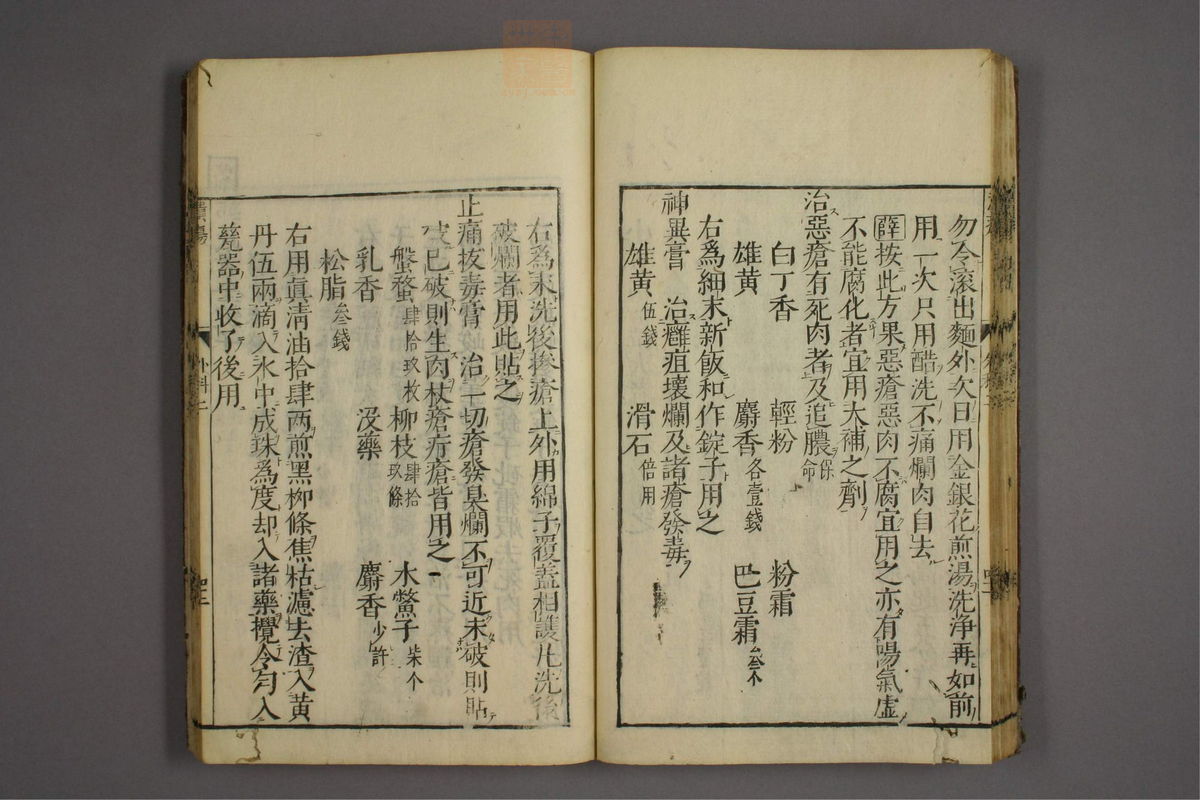 勿令滾出麵外次日用金銀花煎湯洗淨再如前
用一次只用醋洗不痛爛肉自去
薛按此方果惡瘡惡肉不腐宜用之亦有陽氣虛
不能腐化者宜用大補之劑
治惡瘡有死肉者及追膿保命
白丁香　輕粉　粉霜
雄黃　麝香各壹錢　巴豆霜叄个
右為細末新飯和作錠子用之
神異膏　治癰疽壞爛及諸瘡發毒
雄黃伍錢　滑石倍用
右為末洗後摻瘡上外用綿子覆蓋相護凡洗後
破爛者用此貼之
止痛拔毒膏　治一切瘡發臭爛不可近未破則貼
破已破則生肉杖瘡疔瘡皆用之
盤蝥肆拾玖枚　柳枝肆拾玖條　木鱉子柒个
乳香　沒藥　麝香少許
松脂叄錢
右用真清油拾肆两煎黑柳條焦枯濾去渣入黃
丹伍兩滴入水中成珠為度却入諸藥攪令勻入
甆器中收了後用